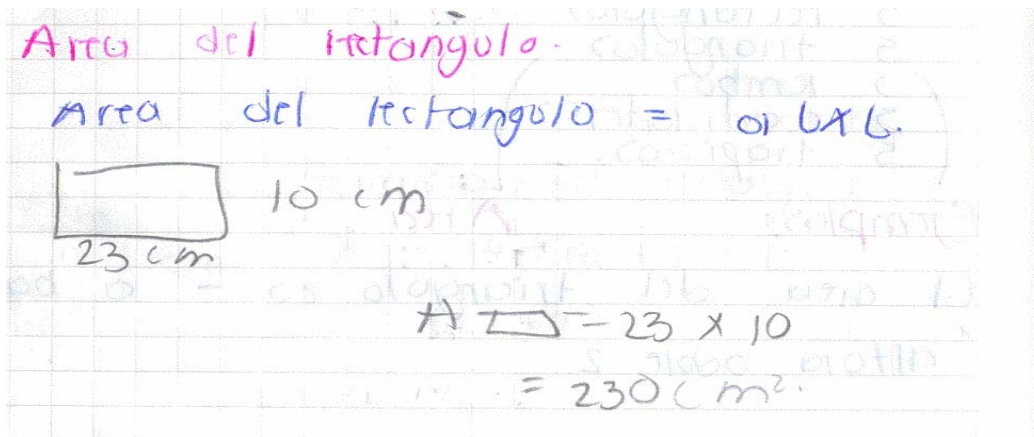 Area del rectangulo.
Area del rectangulo = a x b.
10 cm
23 cm
A ▭ = 23 x 10
= 230 cm².